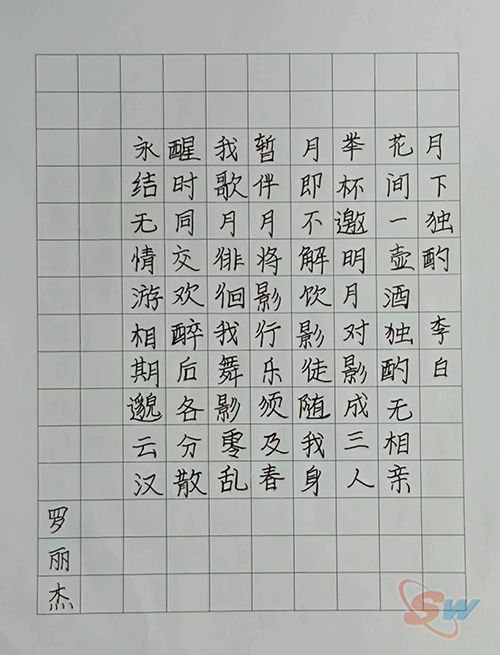 月下独酌 李白
花间一壶酒独酌无相亲
举杯邀明月对影成三人
月即不解饮影徒随我身
暂伴月将影行乐须及春
我歌月徘徊我舞影零乱
醒时同交欢醉后各分散
永结无情游相期邈云汉
罗丽杰
SW